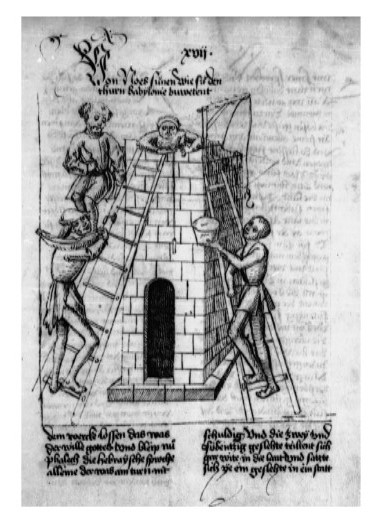 xvij ·
Von Noes sünen wie sü den
thurn babylonie buwetent
dem wercke lossen das was
der wille gottes vnd bleip nů
phalech die hebraysche sproche
alleine der was am turn nit
schuldig Vnd die zwey vnd
sübentzig geslehte teiltent sich
gar wite in die lant vnd satte
sich ye ein geslehte in ein statt